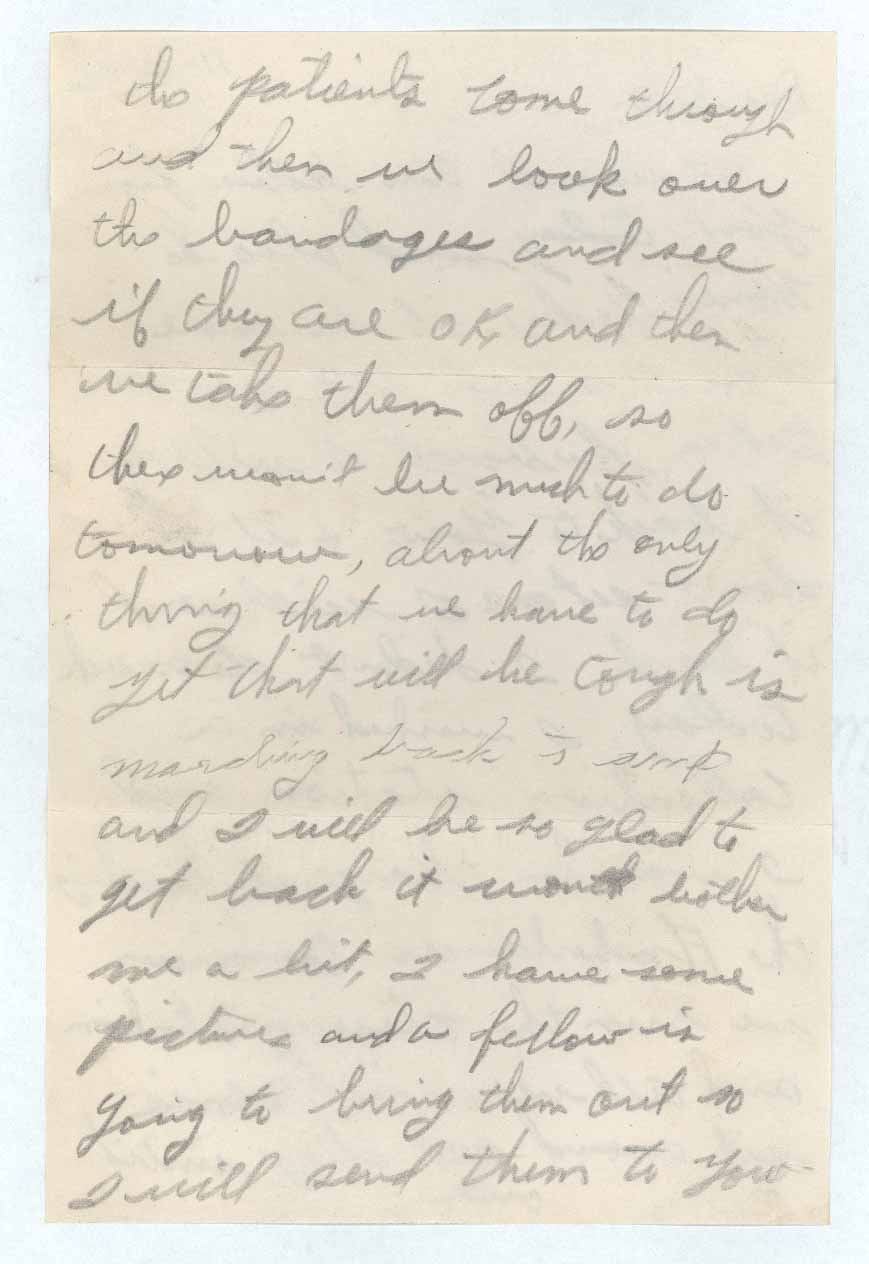 the patients come through
and then we look over
the bandages and see
if they are OK, and then
we take them off, so
there won't be much to do
tomorrow, about the only
thing that we have to do
yet that will be tough is
marching back to camp
and I will be so glad to
get back it won't bother
me a bit, I have some
pictures and a fellow is
going to bring them out so
I will send them to you